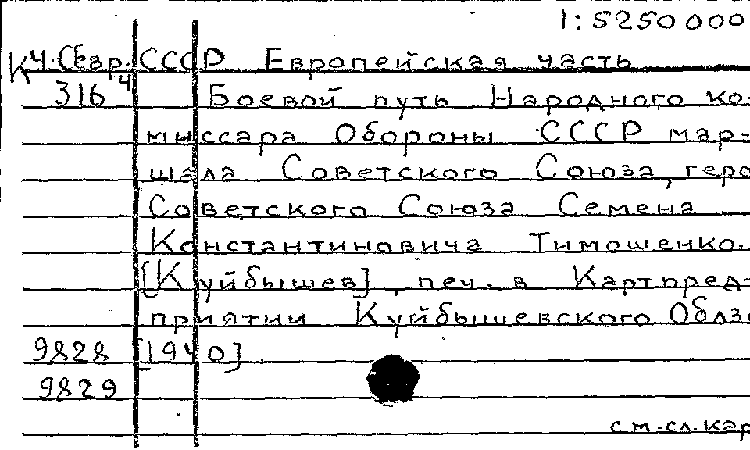 1:5250000
К Ч.Севр. СССР Европейская часть
316 4 Боевой путь Народного ко-
миссара Обороны СССР мар-
шала Советского Союза, геро
Советского Союза Семена
Константиновича Тимошенко.
[Куйбышев], печ. в Картпред-
приятии Куйбышевского Облз
9828 [1940]
9829
см.сл.кар